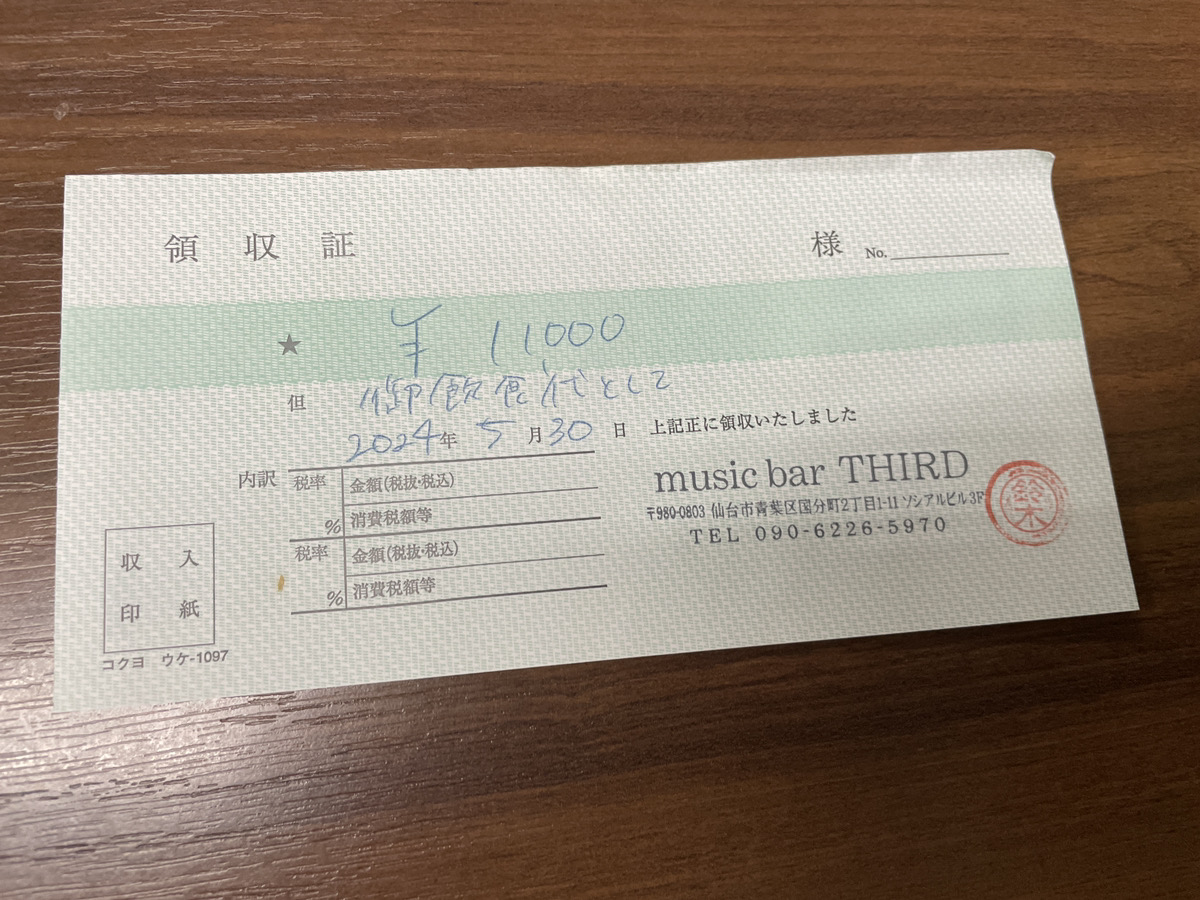 領収証 様 No.
★ ¥ 11,000
但 御飲食代として
2024年 5月30日 上記正に領収いたしました
内訳 税率 % 金額(税抜・税込)
消費税額等
税率 % 金額(税抜・税込)
消費税額等
music bar THIRD
〒980-0803 仙台市青葉区国分町2丁目1-11 ソシアルビル3F
TEL 090-6226-5970
鈴木
収入
印紙
コクヨ ウケ-1097